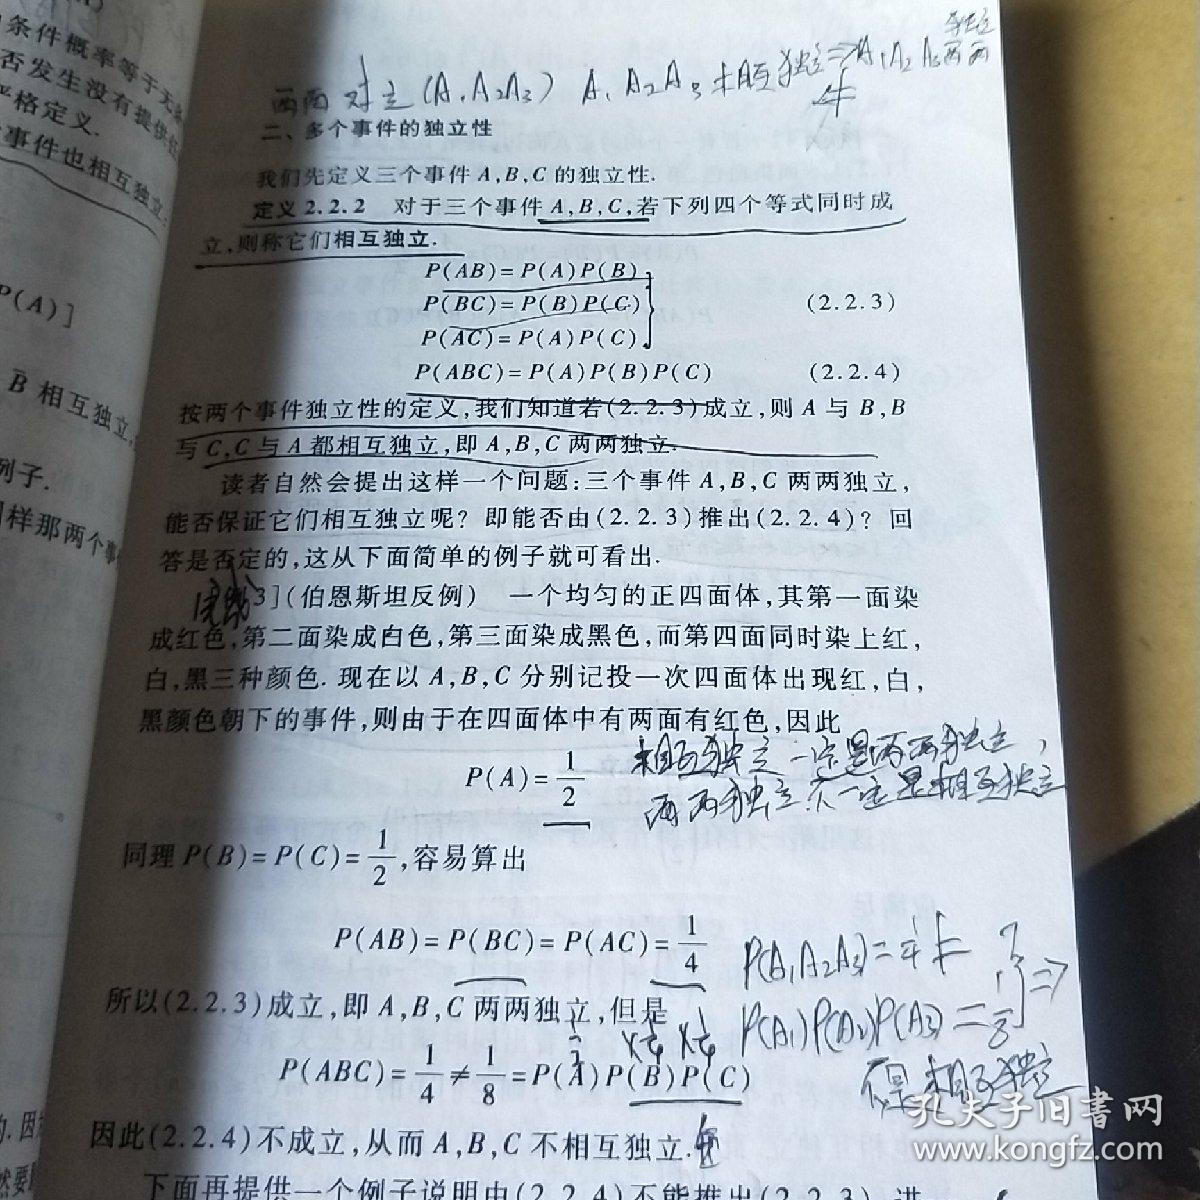 条件概率等于无
否发生没有提供
严格定义.
事件也相互独立
P(A)]
B̄ 相互独立.
例子.
同样那两个事
两两对立(A₁A₂A₃) A₁A₂A₃相互独立⇒A₁A₂A₃两两
二、多个事件的独立性
我们先定义三个事件 A,B,C 的独立性.
定义 2.2.2 对于三个事件 A,B,C,若下列四个等式同时成
立,则称它们相互独立.
P(AB)=P(A)P(B)
P(BC)=P(B)P(C) (2.2.3)
P(AC)=P(A)P(C)
P(ABC)=P(A)P(B)P(C) (2.2.4)
按两个事件独立性的定义,我们知道若(2.2.3)成立,则 A 与 B,B
与 C,C 与 A 都相互独立,即 A,B,C 两两独立.
读者自然会提出这样一个问题:三个事件 A,B,C 两两独立,
能否保证它们相互独立呢? 即能否由(2.2.3)推出(2.2.4)? 回
答是否定的,这从下面简单的例子就可看出.
3](伯恩斯坦反例) 一个均匀的正四面体,其第一面染
成红色,第二面染成白色,第三面染成黑色,而第四面同时染上红,
白,黑三种颜色. 现在以 A,B,C 分别记投一次四面体出现红,白,
黑颜色朝下的事件,则由于在四面体中有两面有红色,因此
P(A)=1/2
相互独立一定是两两独立,
两两独立不一定是相互独立
同理 P(B)=P(C)=1/2,容易算出
P(AB)=P(BC)=P(AC)=1/4
P(A₁A₂A₃)=
所以(2.2.3)成立,即 A,B,C 两两独立,但是
P(A₁)P(A₂)P(A₃)=1/8 ⇒
1/2 ×1/4 ×1/4
P(ABC)=1/4≠1/8=P(A)P(B)P(C)
不是相互独立
因此(2.2.4)不成立,从而 A,B,C 不相互独立.
下面再提供一个例子说明由(2.2.4)不能推出(2.2.3). 进
孔夫子旧书网
www.kongfz.com